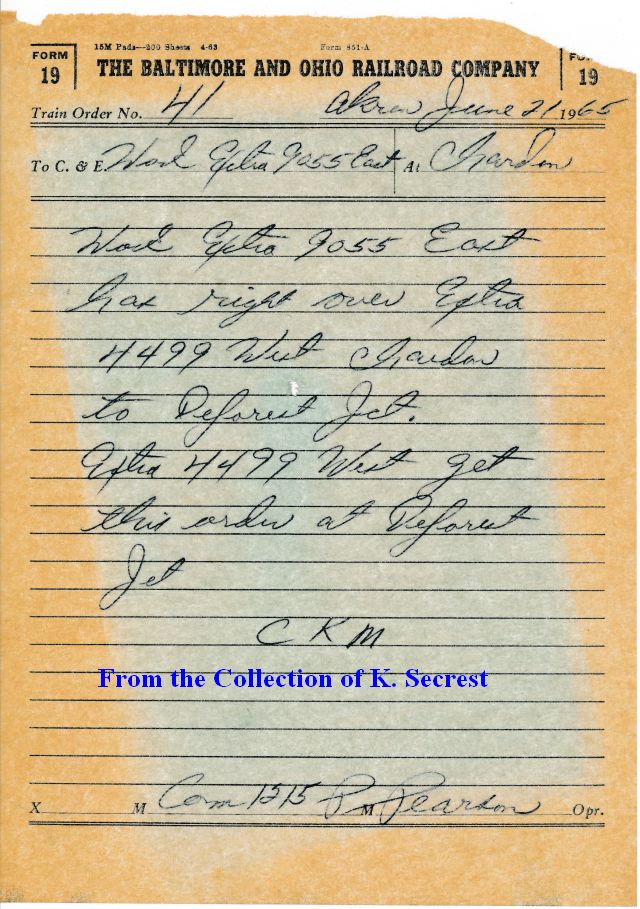 15M Pads—200 Sheets 4-63 Form 851-A
FORM 19 THE BALTIMORE AND OHIO RAILROAD COMPANY 19
Train Order No. 41 Akron June 21 1965
To C. & E. Work Extra 9055 East At Chardon
Work Extra 9055 East
has right over Extra
4499 West Chardon
to Deforest Jct.
Extra 4499 West get
this order at Deforest
Jct
C K M
From the Collection of K. Secrest
X M Com 1215 P M Pearson Opr.